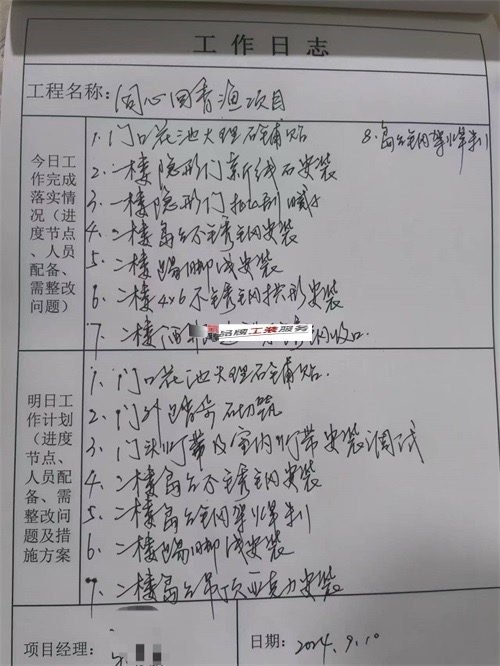 工作日志
工程名称: 同心回青渔项目
今日工作完成落实情况（进度节点、人员配备、需整改问题）
1. 门口花池大理石铺贴
8. 岛台钢架焊制
2. 一楼隐形门新线石安装
3. 一楼隐形门
4. 二楼岛台不锈钢安装
5. 二楼踢脚线安装
6. 二楼4×6不锈钢拱形安装
7. 二楼 收口
品牌工装服务
明日工作计划（进度节点、人员配备、需整改问题及措施方案
1. 门口花池大理石铺贴.
2. 门外 石切筑
3. 门头灯带及室内灯带安装调试
4. 二楼岛台不锈钢安装
5. 二楼岛台钢架焊制
6. 二楼踢脚线安装
7. 二楼岛台吊顶亚克力安装
项目经理:
日期: 2024.9.10